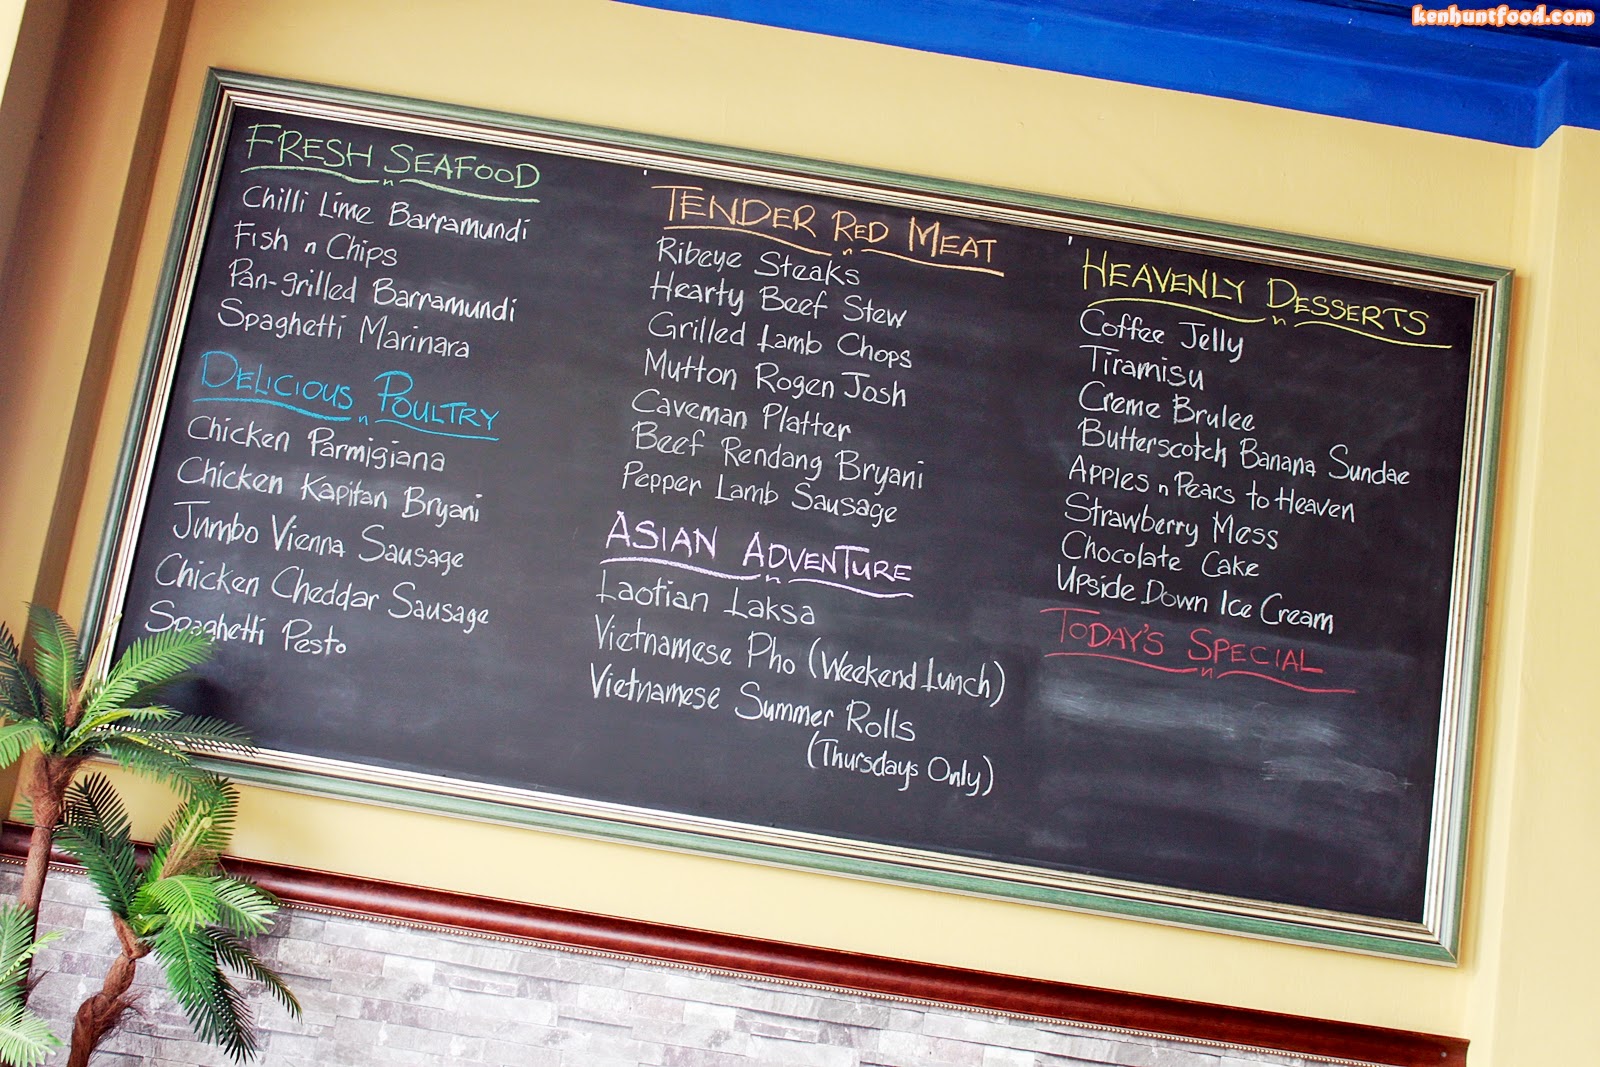 kenhuntfood.com
FRESH SEAFOOD
Chilli Lime Barramundi
Fish n Chips
Pan-grilled Barramundi
Spaghetti Marinara
DELICIOUS POULTRY
Chicken Parmigiana
Chicken Kapitan Bryani
Jumbo Vienna Sausage
Chicken Cheddar Sausage
Spaghetti Pesto
TENDER RED MEAT
Ribeye Steaks
Hearty Beef Stew
Grilled Lamb Chops
Mutton Rogen Josh
Caveman Platter
Beef Rendang Bryani
Pepper Lamb Sausage
ASIAN ADVENTURE
Laotian Laksa
Vietnamese Pho (Weekend Lunch)
Vietnamese Summer Rolls
(Thursdays Only)
HEAVENLY DESSERTS
Coffee Jelly
Tiramisu
Creme Brulee
Butterscotch Banana Sundae
Apples n Pears to Heaven
Strawberry Mess
Chocolate Cake
Upside Down Ice Cream
TODAY'S SPECIAL